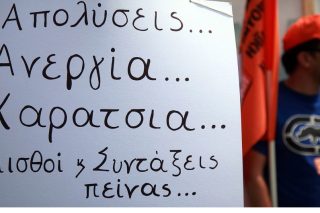 Απολύσεις...
Ανεργία...
Χαρατσια...
Μισθοί ϗ Συντάξεις
πείνας...